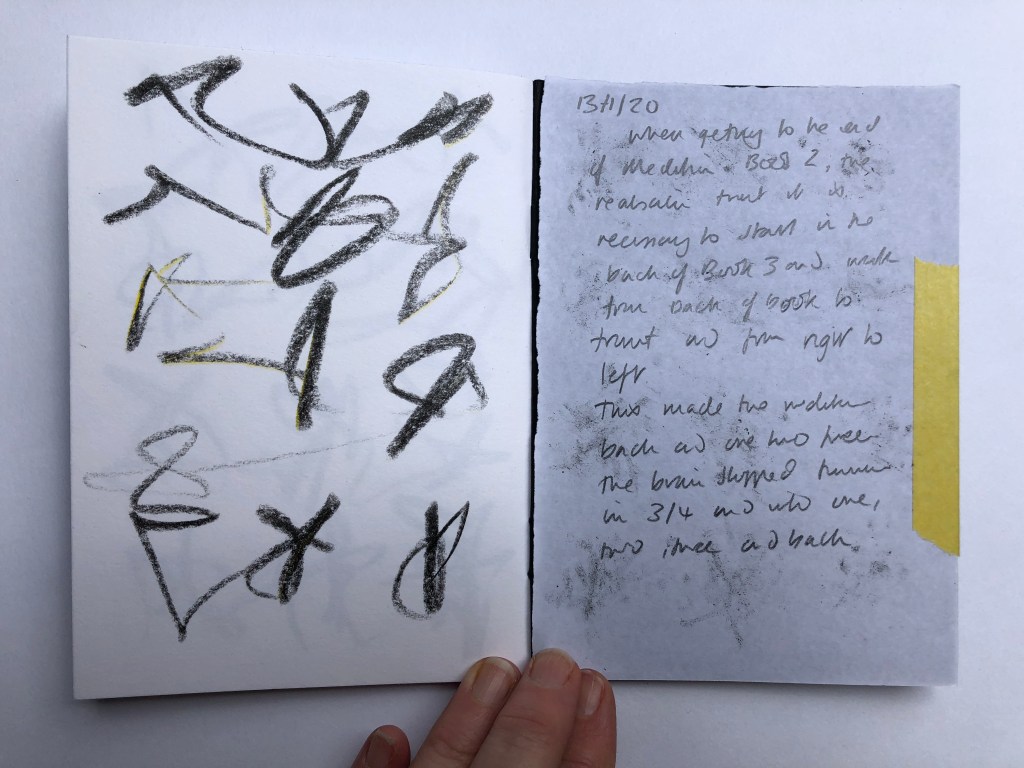 13/1/20
When getting to the end
of Book 2, the
realisation that it is
necessary to start in the
back of Book 3 and work
from back of book to
front and from right to
left
This made the
back and one two three
the brain stopped
in 3/4 and into one,
two, three and back